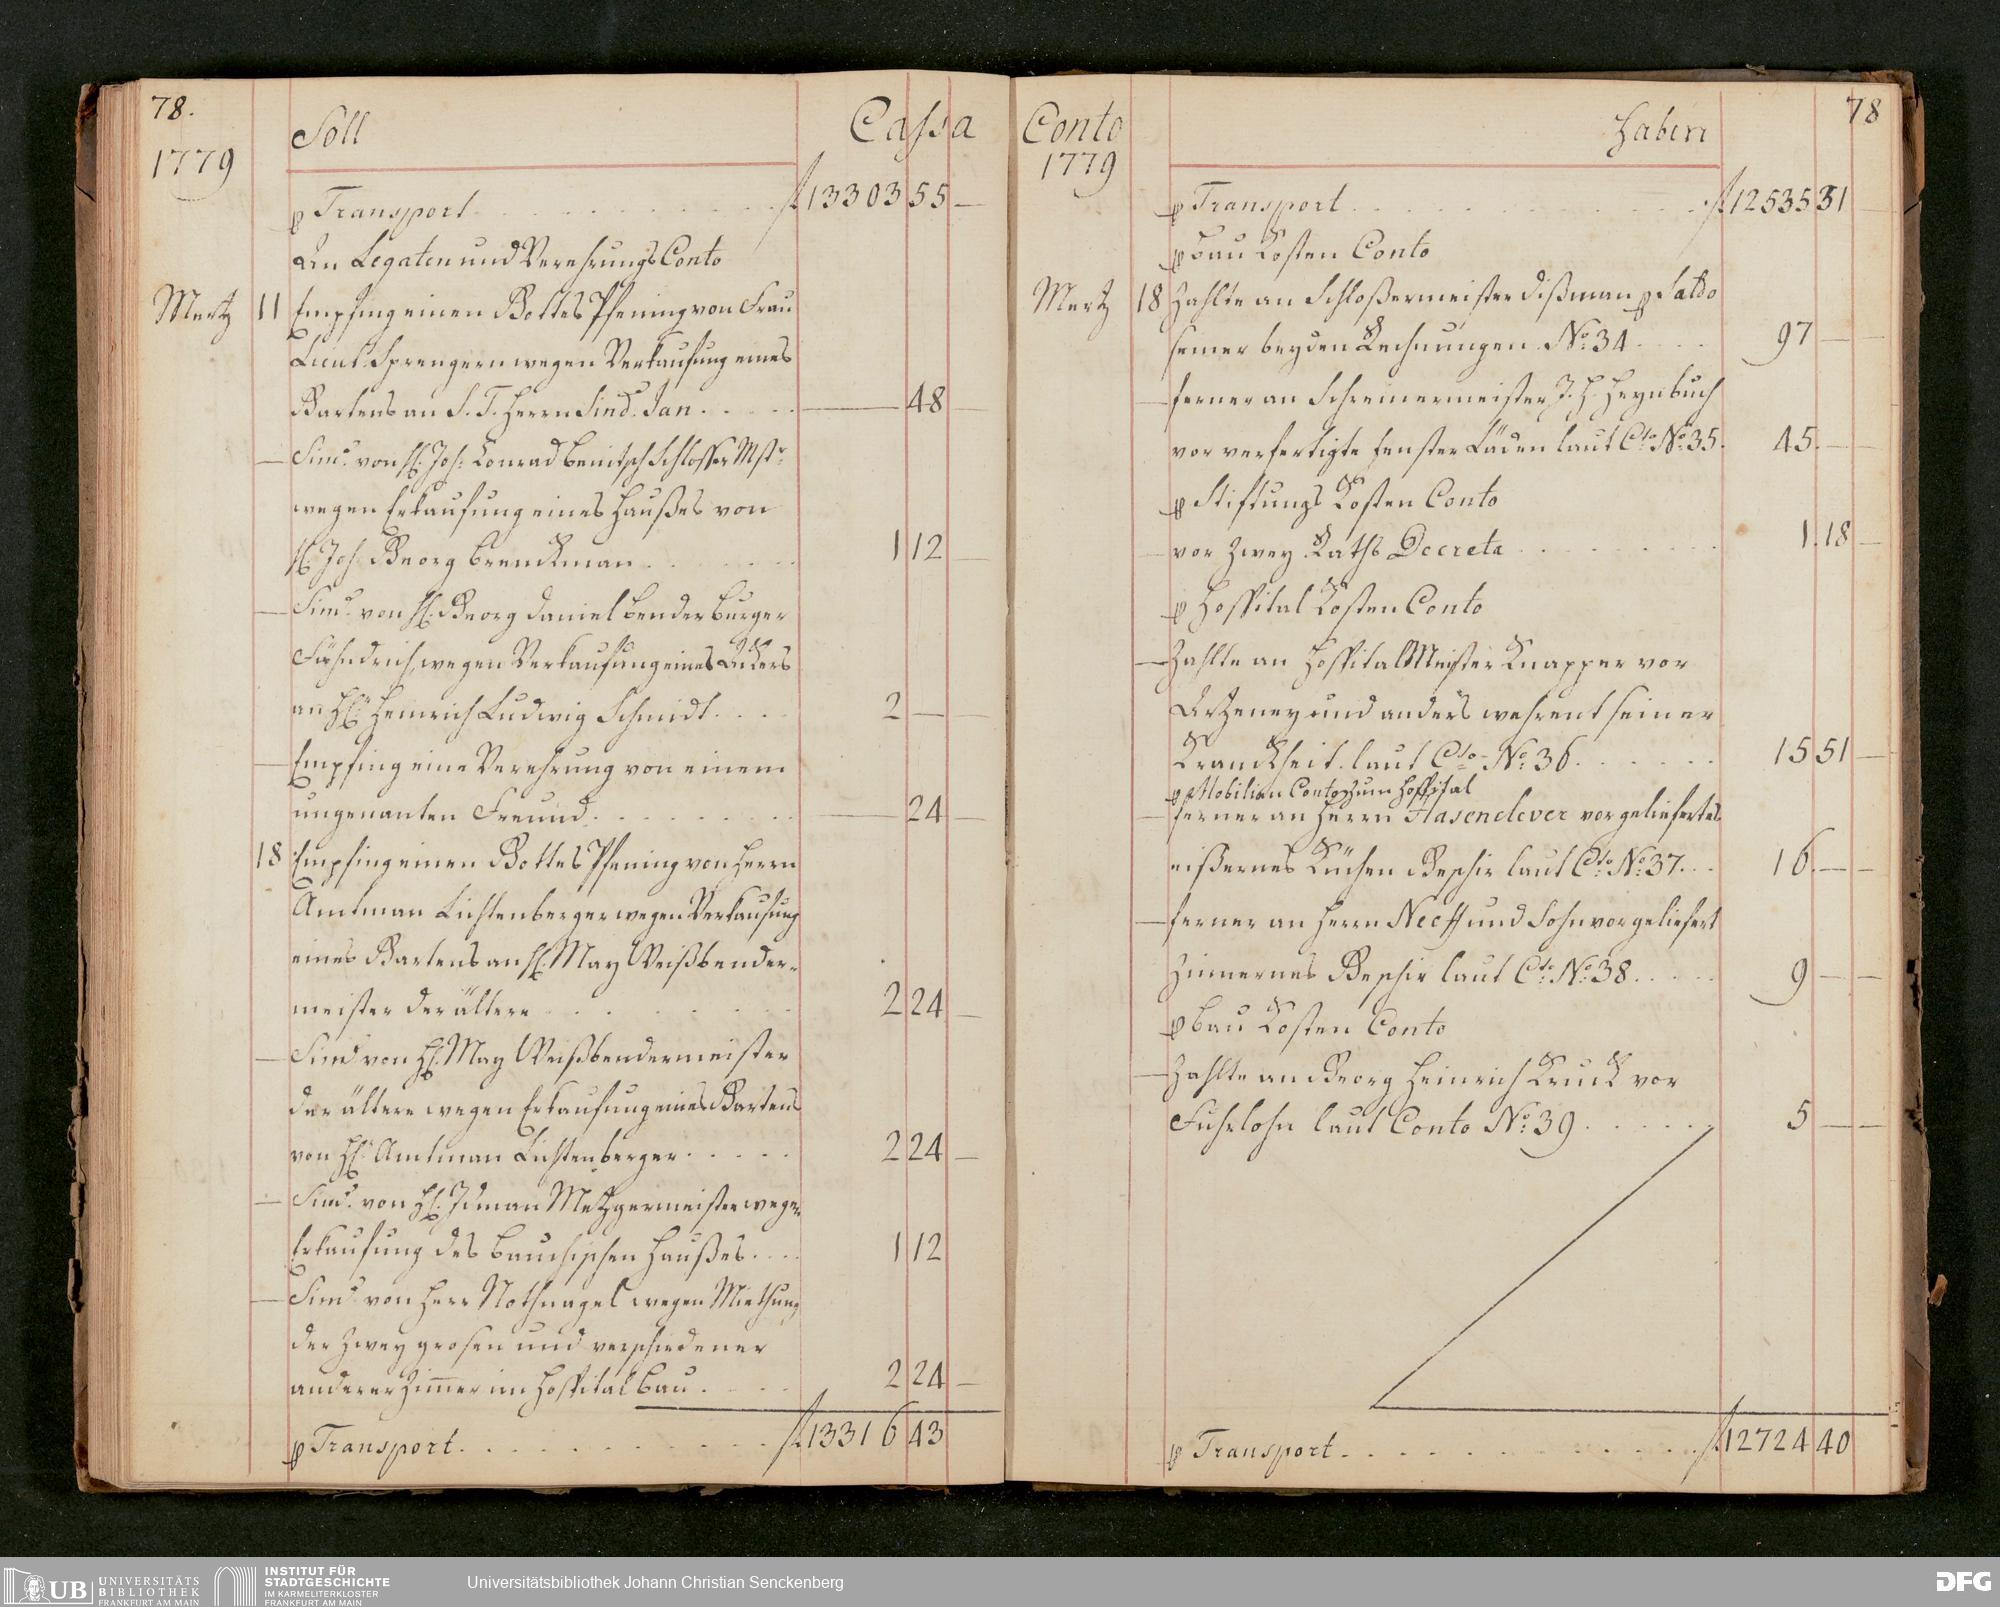 78.
Soll
Cassa
1779
p Transport . . . . . . . . . . f 13303 55 —
An Legaten und Verehrungs Conto
Mertz 11 Empfing einen Gottes Pfening von Frau
Lieut. Sprengern wegen Verkaufung eines
Gartens an S. T. Herrn Sind. Jan . . . — 48 —
— Simd. von H. Joh. Conrad Schlosser Mstr.
wegen Erkaufung eines Haußes von
H. Joh. Georg Brenckman . . . . 1 12 —
— Simd. von H. Georg Daniel Bender Burger
Fähndrich, wegen Verkaufung eines Ackers
an H. Heinrich Ludwig Schmidt . . . . 2 — —
— Empfing eine Verehrung von einem
ungenanten Freund . . . . . . . — 24 —
18 Empfing einen Gottes Pfening von Herrn
Amtman Lichtenberger wegen Verkaufung
eines Gartens an H. May Weißbender-
meister der ältere . . . . . . 2 24 —
— Simd. von H. May Weißbendermeister
der ältere wegen Erkaufung eines Gartens
von H. Amtman Lichtenberger . . . . . 2 24 —
— Simd. von H. Metzgermeister wegen
Erkaufung des Haußes . . . . 1 12
— Simd. von Herr Nothnagel wegen Miethung
der zwey grosen und verschiedener
anderer Zimer im Hospital Bau . . . . 2 24 —
p Transport . . . . . . . . . . f 13316 43
78
Conto
Haben
1779
p Transport . . . . . . . . . . f 12535 31
p Bau Kosten Conto
Mertz 18 Zahlte an Schloßermeister Dißman p Saldo
seiner beyden Rechnungen No. 34 . . . . 97 — —
— ferner an Schreinermeister J. H. Heynbuch
vor verfertigte fenster Läden laut Cto. No. 35. 45. — —
p Stiftungs Kosten Conto
— vor zwey Raths Decreta . . . . . . . 1. 18 —
p Hospital Kosten Conto
— Zahlte an Hospital Meister Knapper vor
Arzeney und anders wehrent seiner
Kranckheit. laut Cto. No. 36 . . . . . . 15 51 —
p Mobilien Conto zum Hospital
— ferner an Herrn Hasenclever vor geliefertes
eißernes Küchen Geschir laut Cto. No. 37. . . 16. — —
— ferner an Herrn Neeff und Sohn vor geliefert
Zinnernes Geschir laut Cto. No. 38 . . . . . 9 — —
p Bau Kosten Conto
— Zahlte an Georg Heinrich Kruck vor
Fuhrlohn laut Conto No. 39 . . . . . . 5 — —
p Transport . . . . . . . . . . f 12724 40
UB UNIVERSITÄTS
BIBLIOTHEK
FRANKFURT AM MAIN
INSTITUT FÜR
STADTGESCHICHTE
IM KARMELITERKLOSTER
FRANKFURT AM MAIN
Universitätsbibliothek Johann Christian Senckenberg
DFG